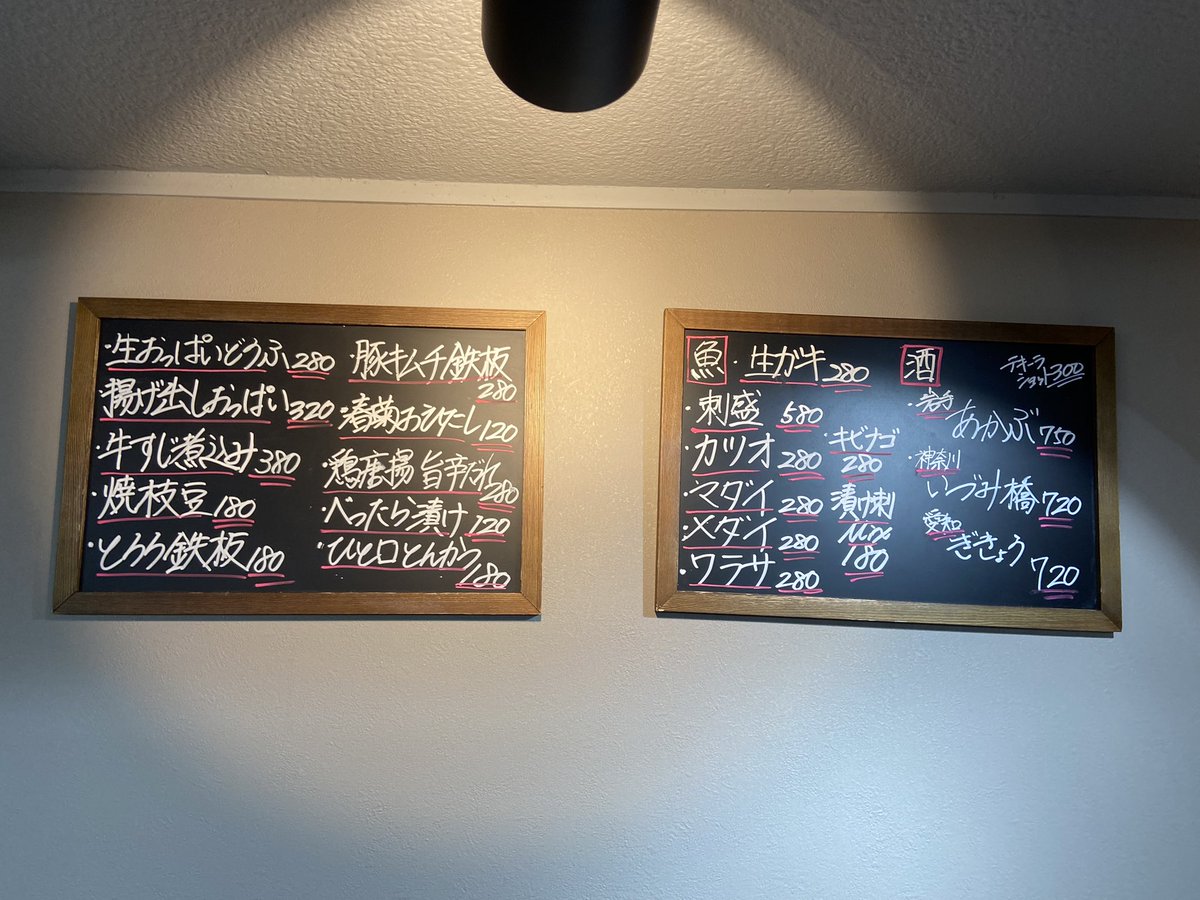 ・生おっぱいどうふ280
揚げ出しおっぱい320
・牛すじ煮込み380
・焼枝豆180
・とろろ鉄板180
・豚キムチ鉄板280
・春菊おひたし120
・鶏唐揚 旨辛だれ280
・べったら漬け120
・ひと口とんかつ180
魚
・生ガキ280
・刺盛 580
・カツオ280
・マダイ280
・メダイ280
・ワラサ280
・キビナゴ
280
漬け刺
Mix
180
酒
テキーラ
ショット300
・岩手
あかぶ750
・神奈川
いづみ橋720
・愛知
ぎきょう
720